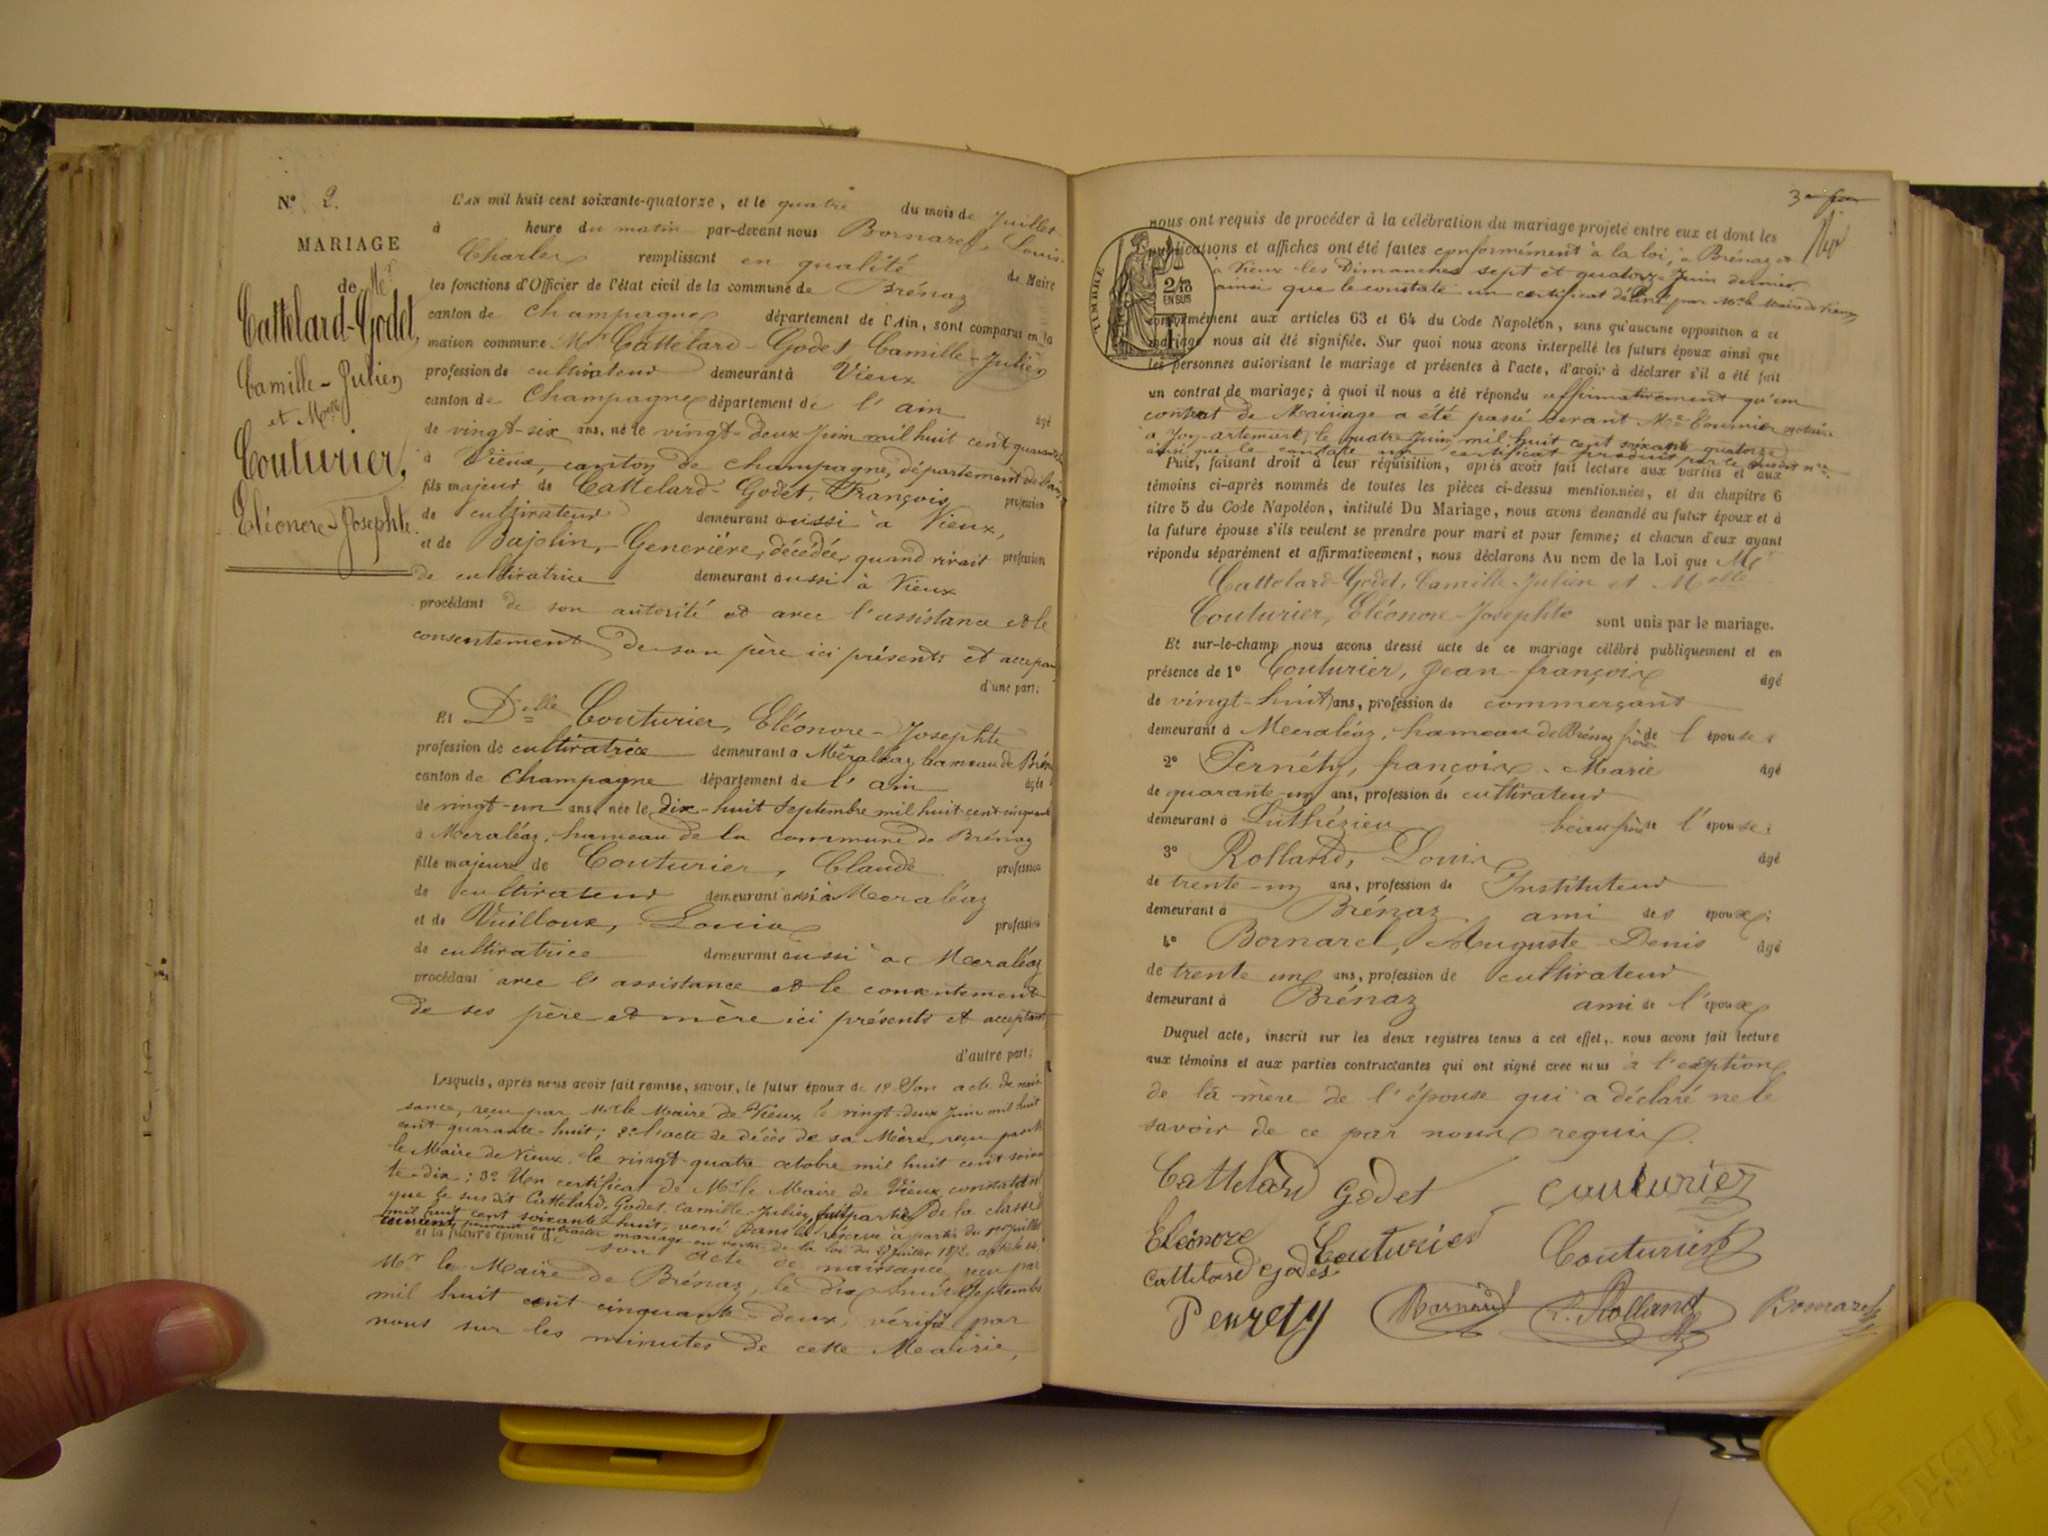 N° 2.
MARIAGE
de Mr
Cattelard-Godet,
Camille-Julien
et Melle
Couturier,
Eléonore-Josephte.
L'AN mil huit cent soixante-quatorze, et le quatre du mois de Juillet
à heure du matin par-devant nous Bornarel, Louis-
Charles remplissant en qualité de Maire
les fonctions d'Officier de l'état civil de la commune de Brénaz
canton de Champagne département de l'Ain, sont comparus en la
maison commune Mr Cattelard-Godet Camille-Julien
profession de cultivateur demeurant à Vieux
canton de Champagne département de l'ain âgé
de vingt-six ans, né le vingt-deux Juin mil huit cent quarante
à Vieux, canton de Champagne, département de l'ain
fils majeur de Cattelard-Godet, François profession
de cultivateur demeurant aussi à Vieux,
et de Bajolin, Generière, décédée, quand vivait profession
de cultivatrice demeurant aussi à Vieux
procédant de son autorité et avec l'assistance et le
consentement de son père ici présents et acceptant
d'une part;
Et Delle Couturier, Eléonore-Josephte
profession de cultivatrice demeurant à Méraléaz hameau de Brénaz
canton de Champagne département de l'ain âgée
de vingt-un ans, née le dix-huit Septembre mil huit cent cinquante
à Méraléaz, hameau de la commune de Brénaz
fille majeure de Couturier, Claude profession
de cultivateur demeurant aussi à Meraléaz
et de Vuilloux, Louise profession
de cultivatrice demeurant aussi à Meraléaz
procédant avec l'assistance et le consentement
de ses père et mère ici présents et acceptant
d'autre part;
Lesquels, après nous avoir fait remise, savoir, le futur époux de 1° Son acte de nais-
sance, reçu par Mr le Maire de Vieux le vingt-deux Juin mil huit
cent quarante-huit; 2° l'acte de décès de sa Mère, reçu par Mr
le Maire de Vieux le vingt-quatre octobre mil huit cent soixan
te-dix; 3° Un certificat de Mr le Maire de Vieux constatant
que le susdit Cattelard-Godet, Camille-Julien fait partie de la classe
mil huit cent soixante-huit, versé dans la réserve à partir du 1er juillet
courant, pouvant contracter mariage en vertu de la loi du 27 Juillet 1872, article 44
et la future épouse de son acte de naissance reçu par
Mr le Maire de Brénaz, le dix-huit Septembre
mil huit cent cinquante-deux, vérifié par
nous sur les minutes de cette Mairie,
TIMBRE
2/10
EN SUS
nous ont requis de procéder à la célébration du mariage projeté entre eux et dont les
publications et affiches ont été faites conformément à la loi, à Brénaz et
à Vieux les Dimanches sept et quatorze Juin dernier
ainsi que le constate un certificat délivré par Mr le Maire de Vieux
conformément aux articles 63 et 64 du Code Napoléon, sans qu'aucune opposition à ce
mariage nous ait été signifiée. Sur quoi nous avons interpellé les futurs époux ainsi que
les personnes autorisant le mariage et présentes à l'acte, d'avoir à déclarer s'il a été fait
un contrat de mariage; à quoi il nous a été répondu affirmativement qu'un
contrat de Mariage a été passé devant Me notaire
à le quatre Juin mil huit cent soixante quatorze
ainsi que le constate un certificat produit par le susdit nre.
Puis, faisant droit à leur réquisition, après avoir fait lecture aux parties et aux
témoins ci-après nommés de toutes les pièces ci-dessus mentionnées, et du chapitre 6
titre 5 du Code Napoléon, intitulé Du Mariage, nous avons demandé au futur époux et à
la future épouse s'ils veulent se prendre pour mari et pour femme; et chacun d'eux ayant
répondu séparément et affirmativement, nous déclarons Au nom de la Loi que Mr
Cattelard-Godet, Camille-Julien et Melle
Couturier, Eléonore-Josephte sont unis par le mariage.
Et sur-le-champ nous avons dressé acte de ce mariage célébré publiquement et en
présence de 1° Couturier, Jean-françois âgé
de vingt-huit ans, profession de commerçant
demeurant à Meraléaz, hameau de Brénaz frère de l'épouse;
2° Pernéty, françois-Marie âgé
de quarante-un ans, profession de cultivateur
demeurant à Luthézieu beau frère de l'épouse;
3° Rolland, Louis âgé
de trente-un ans, profession de Instituteur
demeurant à Brénaz ami des époux;
4° Bornarel, Auguste-Denis âgé
de trente un ans, profession de cultivateur
demeurant à Brénaz ami de l'époux
Duquel acte, inscrit sur les deux registres tenus à cet effet, nous avons fait lecture
aux témoins et aux parties contractantes qui ont signé avec nous à l'exeption
de la mère de l'épouse qui a déclaré ne le
savoir de ce par nous requis.
Cattelard Godet Couturier
Eléonore Couturier Couturier
Cattelard Godet
Pernety Bornarel L. Rolland Bornarel